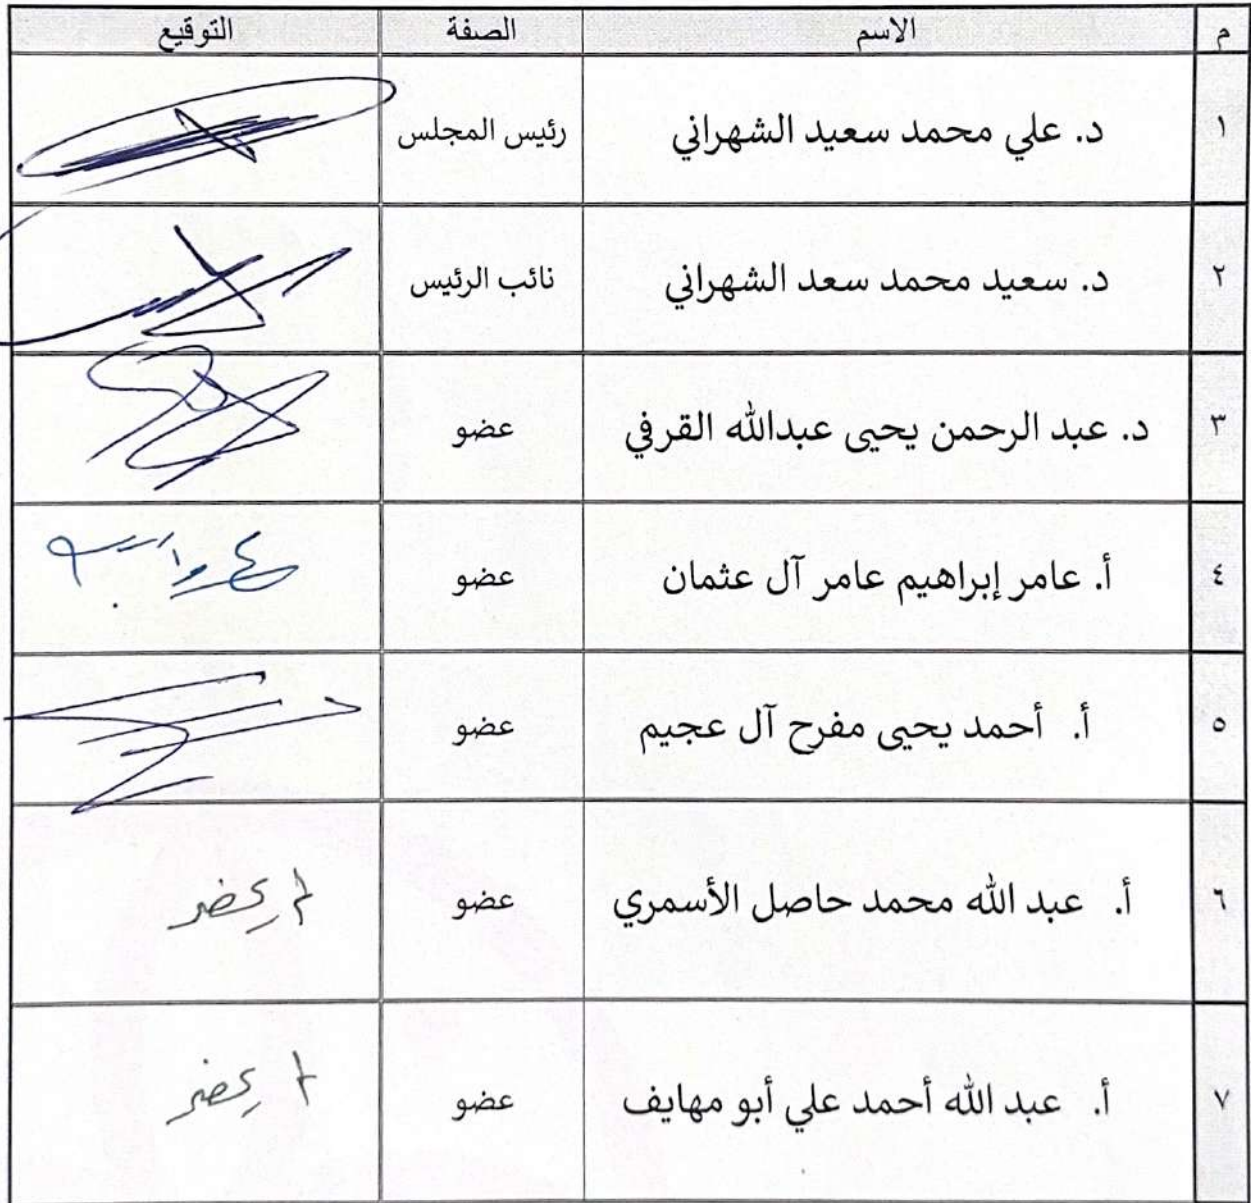 م الاسم الصفة التوقيع
١ د. علي محمد سعيد الشهراني رئيس المجلس
٢ د. سعيد محمد سعد الشهراني نائب الرئيس
٣ د. عبد الرحمن يحيى عبدالله القرفي عضو
٤ أ. عامر إبراهيم عامر آل عثمان عضو
٥ أ. أحمد يحيى مفرح آل عجيم عضو
٦ أ. عبد الله محمد حاصل الأسمري عضو لم يحضر
٧ أ. عبد الله أحمد علي أبو مهايف عضو لم يحضر